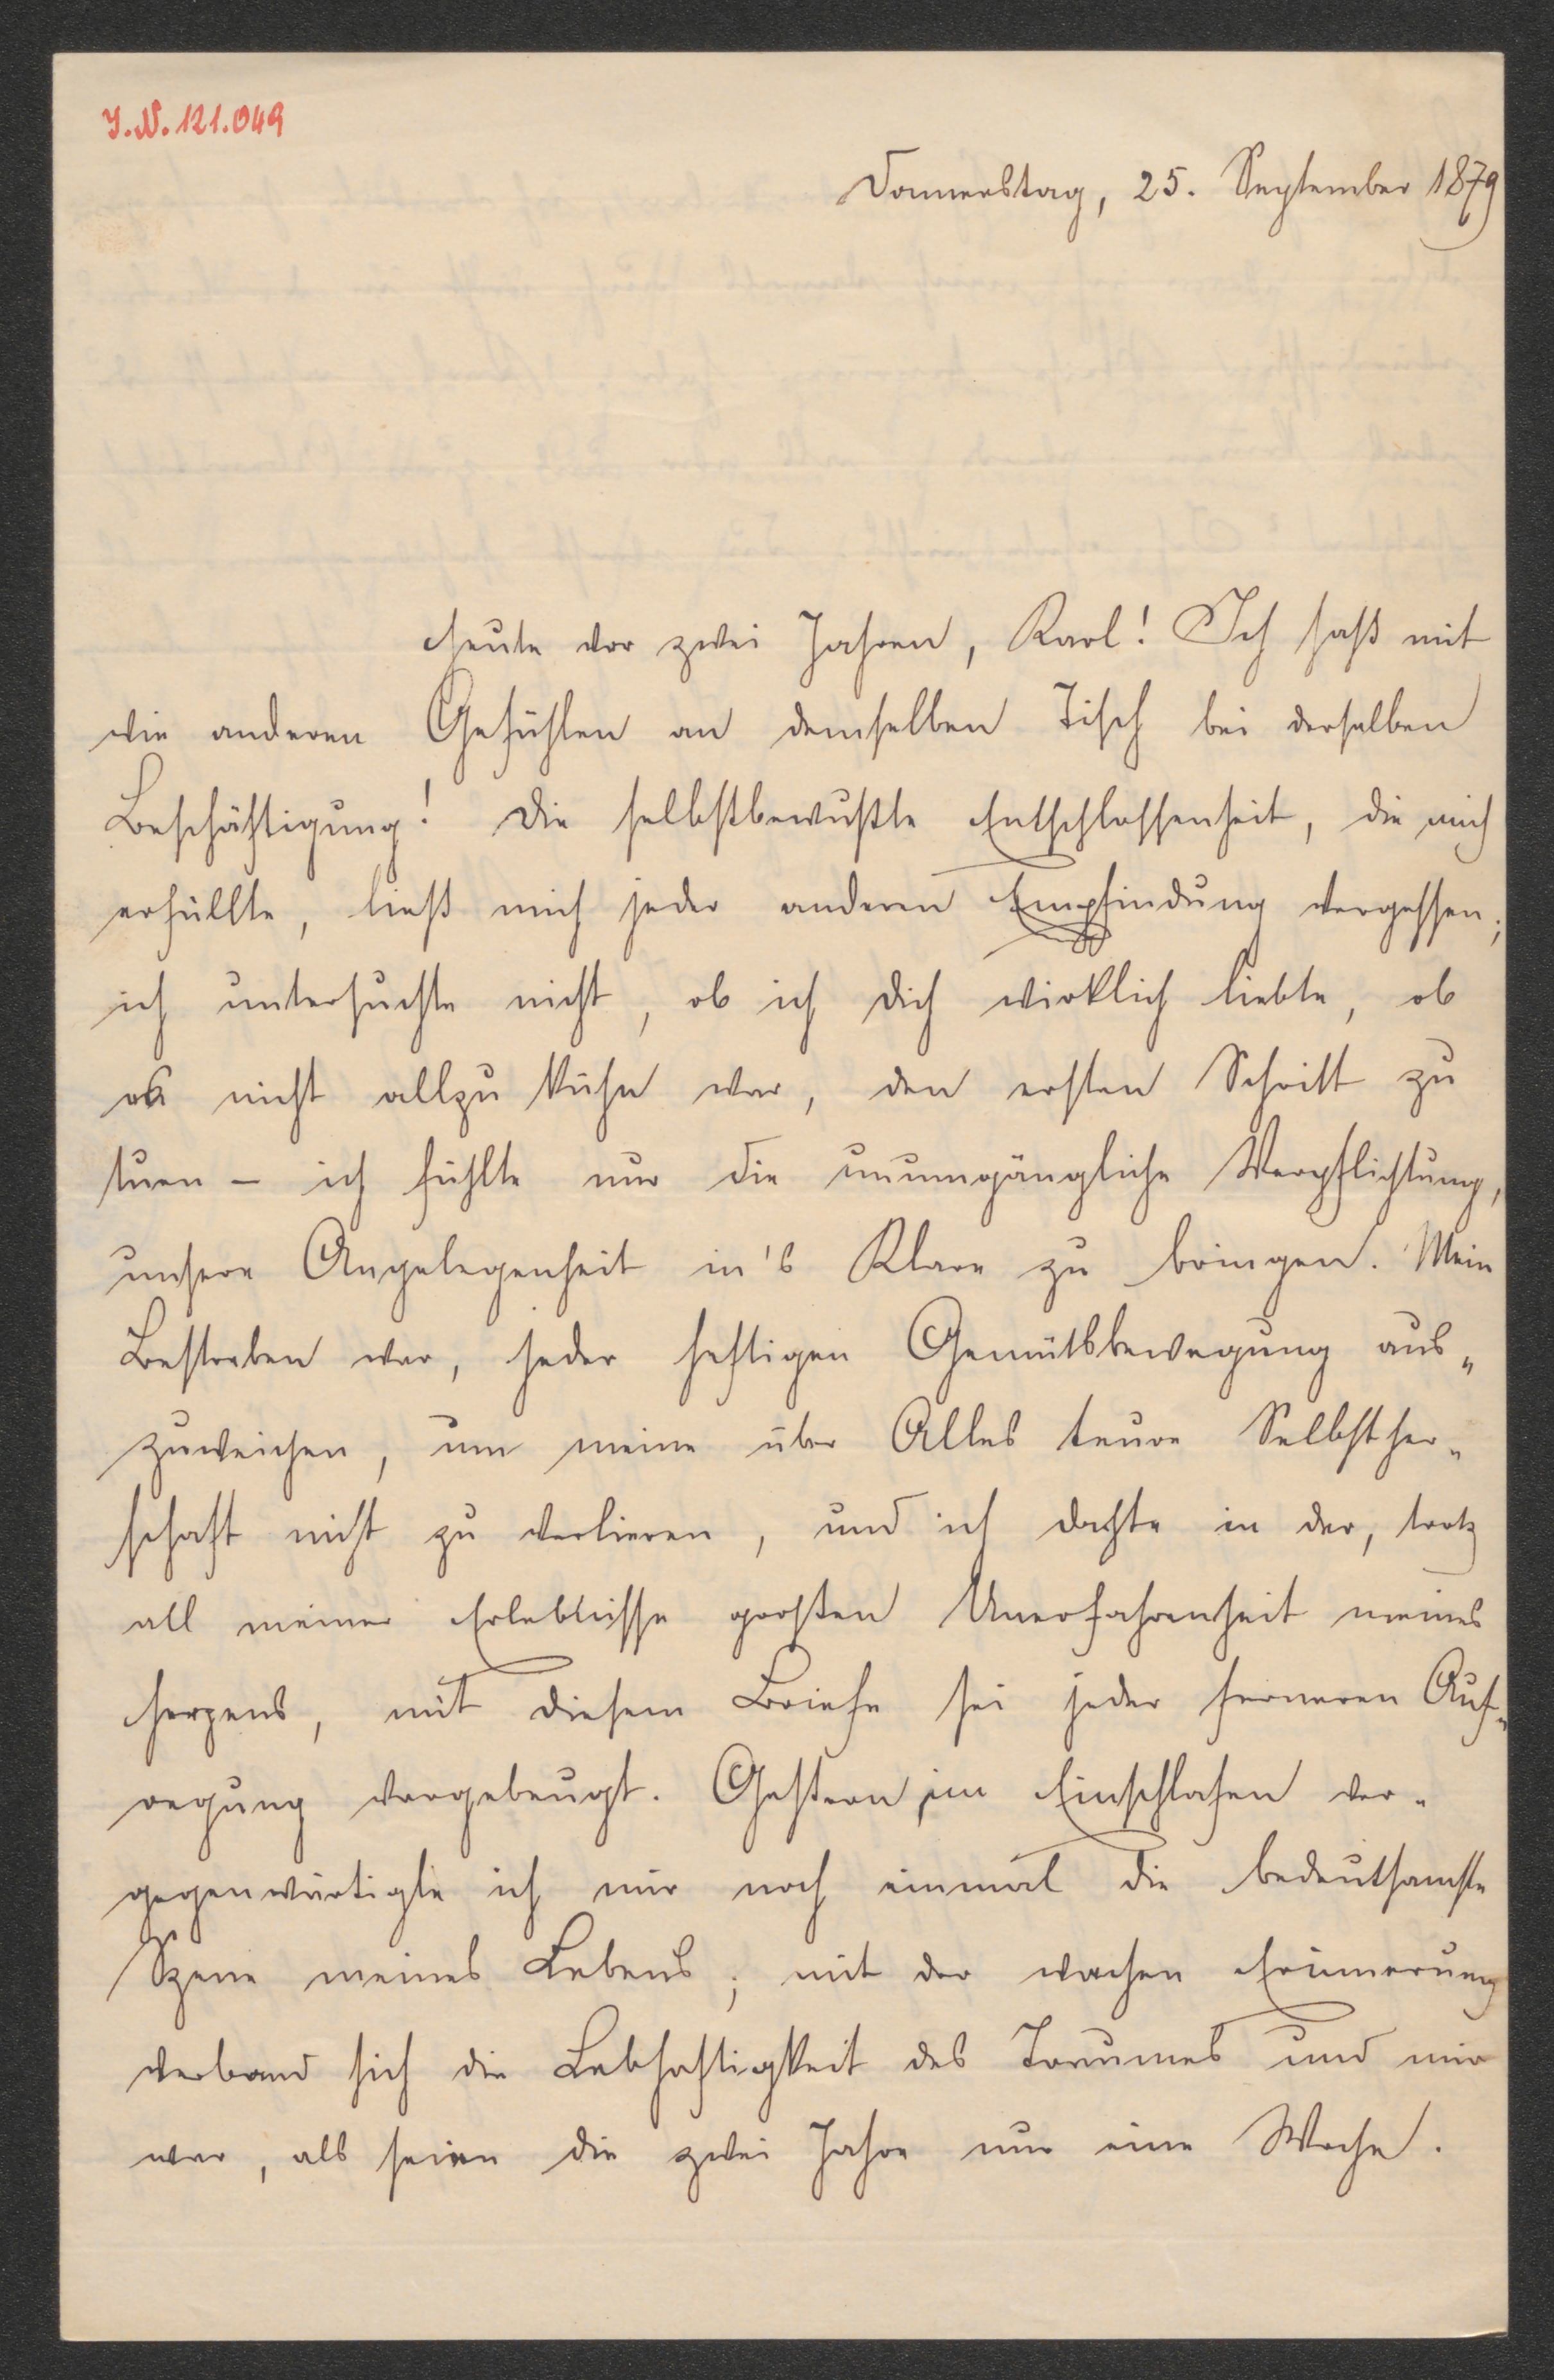 I.N. 121.049
Donnerstag, 25. September 1879
Heute vor zwei Jahren, Karl! Ich saß mit
wie anderen Gefühlen an demselben Tisch bei derselben
Beschäftigung! Die selbstbewußte Entschlossenheit, die mich
erfüllte, ließ mich jeder anderen Empfindung vergessen;
ich untersuchte nicht, ob ich Dich wirklich liebte, ob
es nicht allzu kühn war, den ersten Schritt zu
tuen – ich fühlte nur die unumgängliche Verpflichtung,
unsere Angelegenheit in's Klare zu bringen. Mein
Bestreben war, jeder heftigen Gemütsbewegung aus„
zuweichen, um meine über Alles teure Selbsther„
schaft nicht zu verlieren, und ich dachte in der, trotz
all meiner Erlebnisse großen Unerfahrenheit meines
Herzens, mit diesem Briefe sei jeder ferneren Auf„
regung vorgebeugt. Gestern im Einschlafen ver„
gegenwärtigte ich mir noch einmal die bedeutsamste
Szene meines Lebens; mit der wachen Erinnerung
verband sich die Lebhaftigkeit des Traumes und mir
war, als seien die zwei Jahre nur eine Woche.